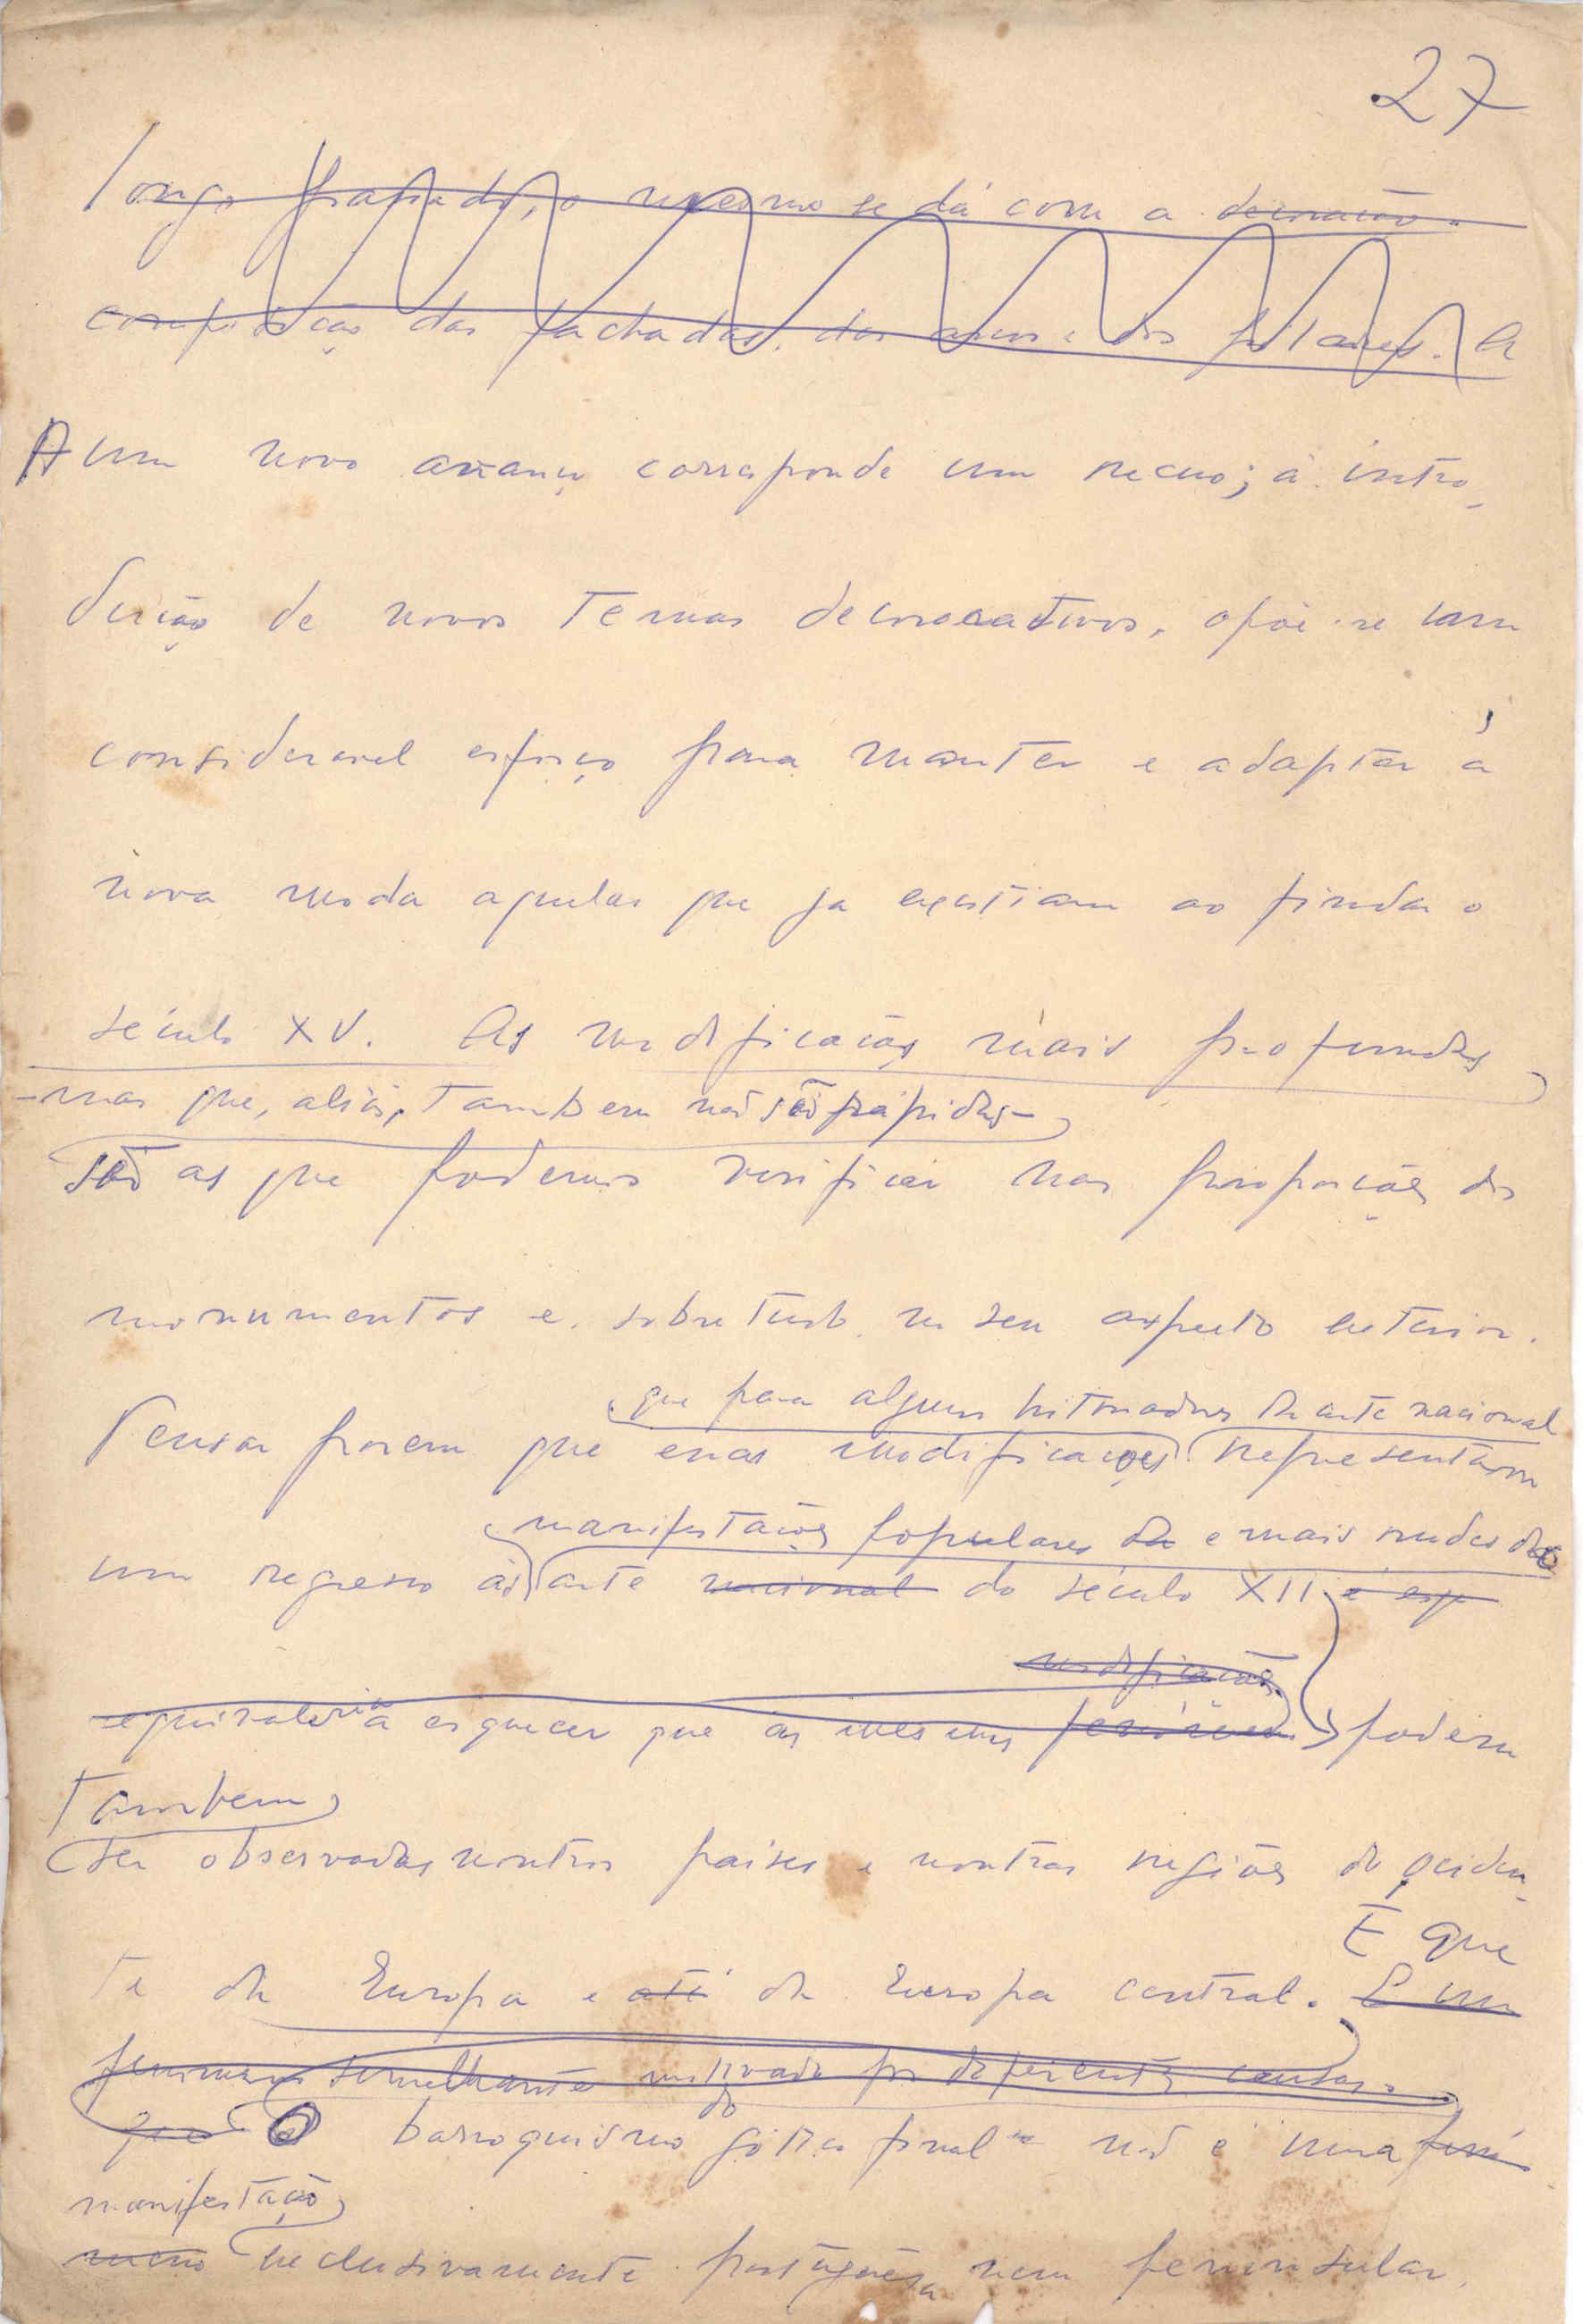 27
longo fraseado, o mesmo se dá com a decoração.
composição das fachadas, dos arcos e dos pilares. A
A um novo avanço corresponde um recuo; à intro-
dução de novos temas decorativos, opõe-se um
consideravel esforço para manter e adaptar à
nova moda aqueles que ja existiam ao findar o
século XV. As modificações mais profundas
-mas que, aliás, tambem não são rápidas-
são as que podemos verificar nas proporções dos
monumentos e, sobretudo, no seu aspecto exterior.
que para alguns historiadores da arte nacional
Pensar porem que essas modificações representam
manifestações populares da e mais rudes da
um regresso às arte nacional do século XII e esp
modificações
equivaleria a esquecer que as mesmas podem
Tambem
ser observadas noutros paises e noutras regiões do ociden-
É que
te da Europa e até da Europa central. É um
fenomeno semelhante motivado por diferentes causas.
que O barroquismo do gótico final não é uma fenó
manifestação
meno exclusivamente portuguesa nem peninsular.